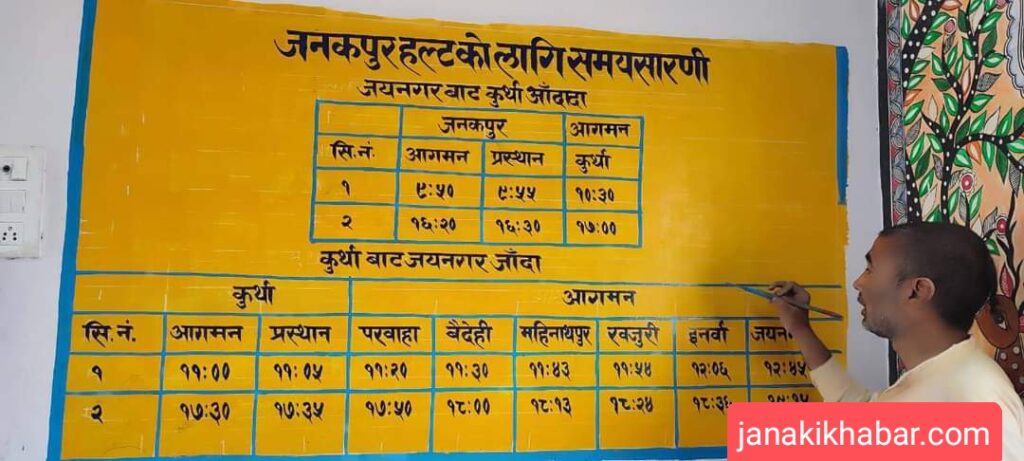 जनकपुर हल्टको लागि समयसारणी
जयनगर बाट कुर्था आँदाहा
जनकपुर आगमन
सि.नं. आगमन प्रस्थान कुर्था
१ ९:५० ९:५५ १०:३०
२ १६:२० १६:३० १७:००
कुर्था बाट जयनगर जाँदा
कुर्था आगमन
सि.नं. आगमन प्रस्थान परवाहा बैदेही महिनाथपुर खजुरी इनर्वा
१ ११:०० ११:०५ ११:२० ११:३० ११:४३ ११:५४ १२:०६ १२:४५
२ १७:३० १७:३५ १७:५० १८:०० १८:१३ १८:२४ १८:३६
janakikhabar.com